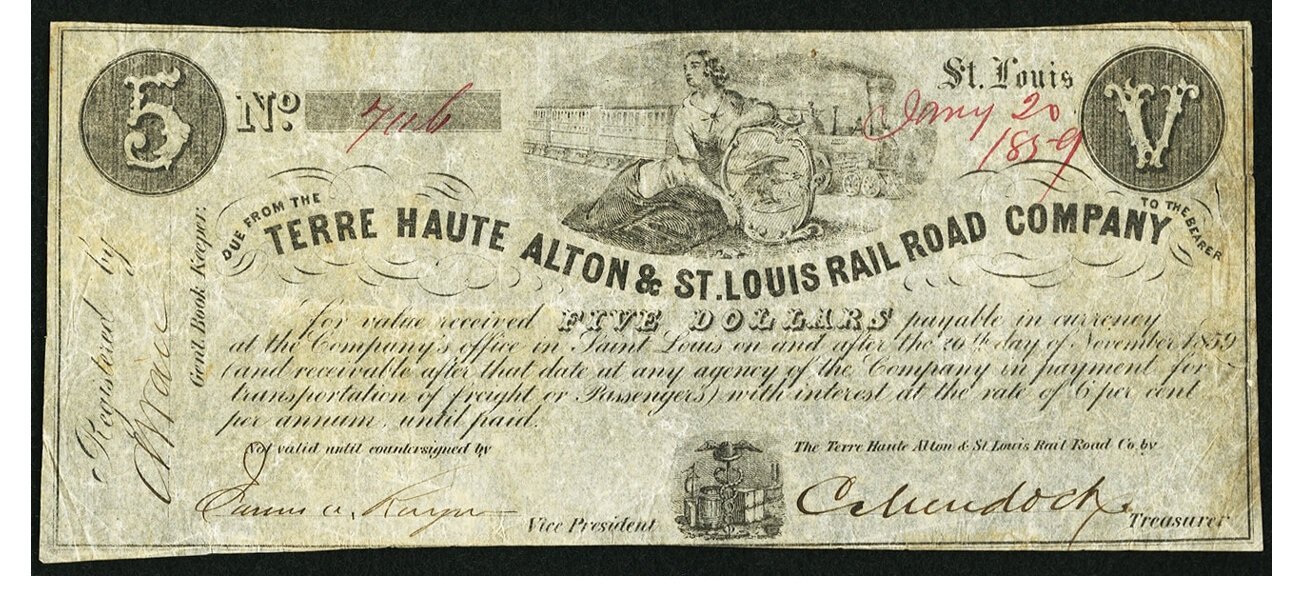 5
No. 746
St. Louis
Jany 20
1859
V
DUE FROM THE
TERRE HAUTE ALTON & ST. LOUIS RAIL ROAD COMPANY
TO THE BEARER
for value received FIVE DOLLARS payable in currency
at the Company's office in Saint Louis on and after the 20th day of November 1859
(and receivable after that date at any agency of the Company in payment for
transportation of freight or Passengers) with interest at the rate of 6 per cent
per annum, until paid.
Registered by
Genl. Book Keeper.
Not valid until countersigned by
The Terre Haute Alton & St. Louis Rail Road Co. by
Vice President
Treasurer